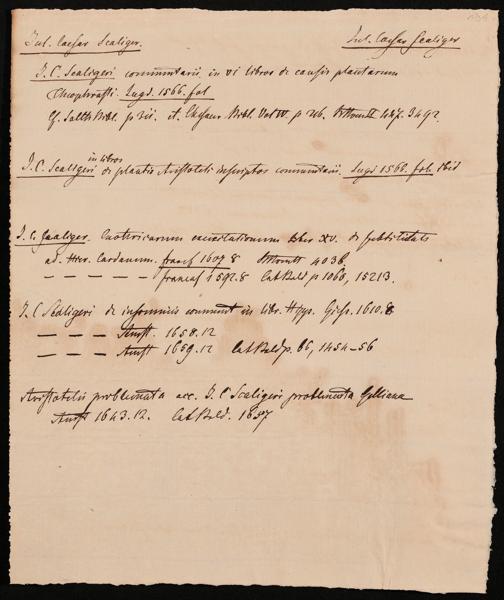 Jul. Caesar Scaliger. Jul. Caesar Scaliger
J. C. Scaligeri commentarii in VI libros de causis plantarum
Theophrasti. Lugd. 1566. fol
Cf. Bibl. p 311. et. Bibl. Vet IV. p 216. 487. 3492.
in libros
J. C. Scaligeri de plantis Aristoteli inscriptos commentarii. Lugd 1566. fol. ibid
J. C. Scaliger. Exotericarum exercitationum liber XV. de subtilitate
ad. Hier. Cardanum. francf 1607. 8 4036.
— — — — — — francof 1592. 8 Cat Bald p 1060, 15213.
J. C Scaligeri de insomniis comment in libr. Hipp. Giss. 1610. 8
— — — Amst. 1658. 12
— — — Amst 1659. 12 Cat Bald p. 86, 1454–56
Aristotelis problemata acc. J. C Scaligeri problemata Gelliana
Amst 1643. 12. Cat Bald. 1657